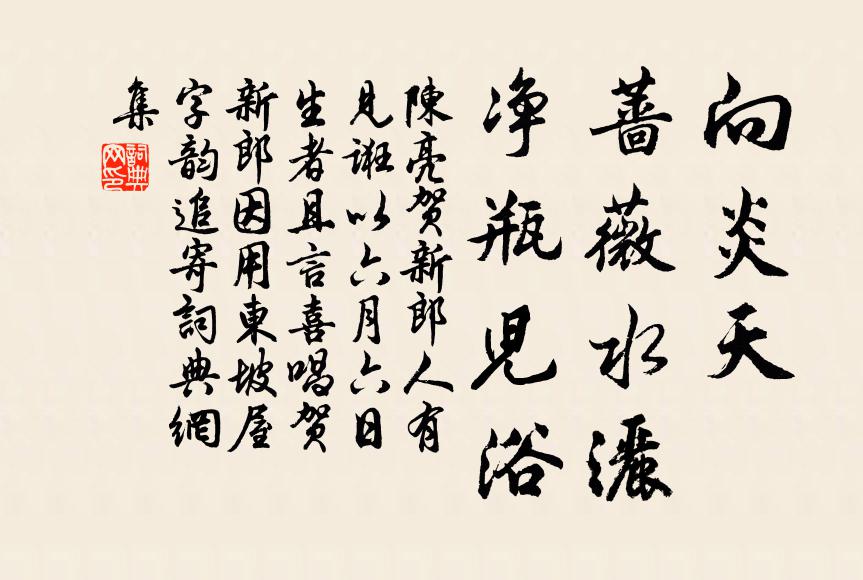 向炎天
薔薇水灑
净瓶兒浴
陳亮賀新郎人有
見誑以六月六日
生者且言喜唱賀
新郎因用東坡屋
字韵追寄詞典網
集
詞典網印